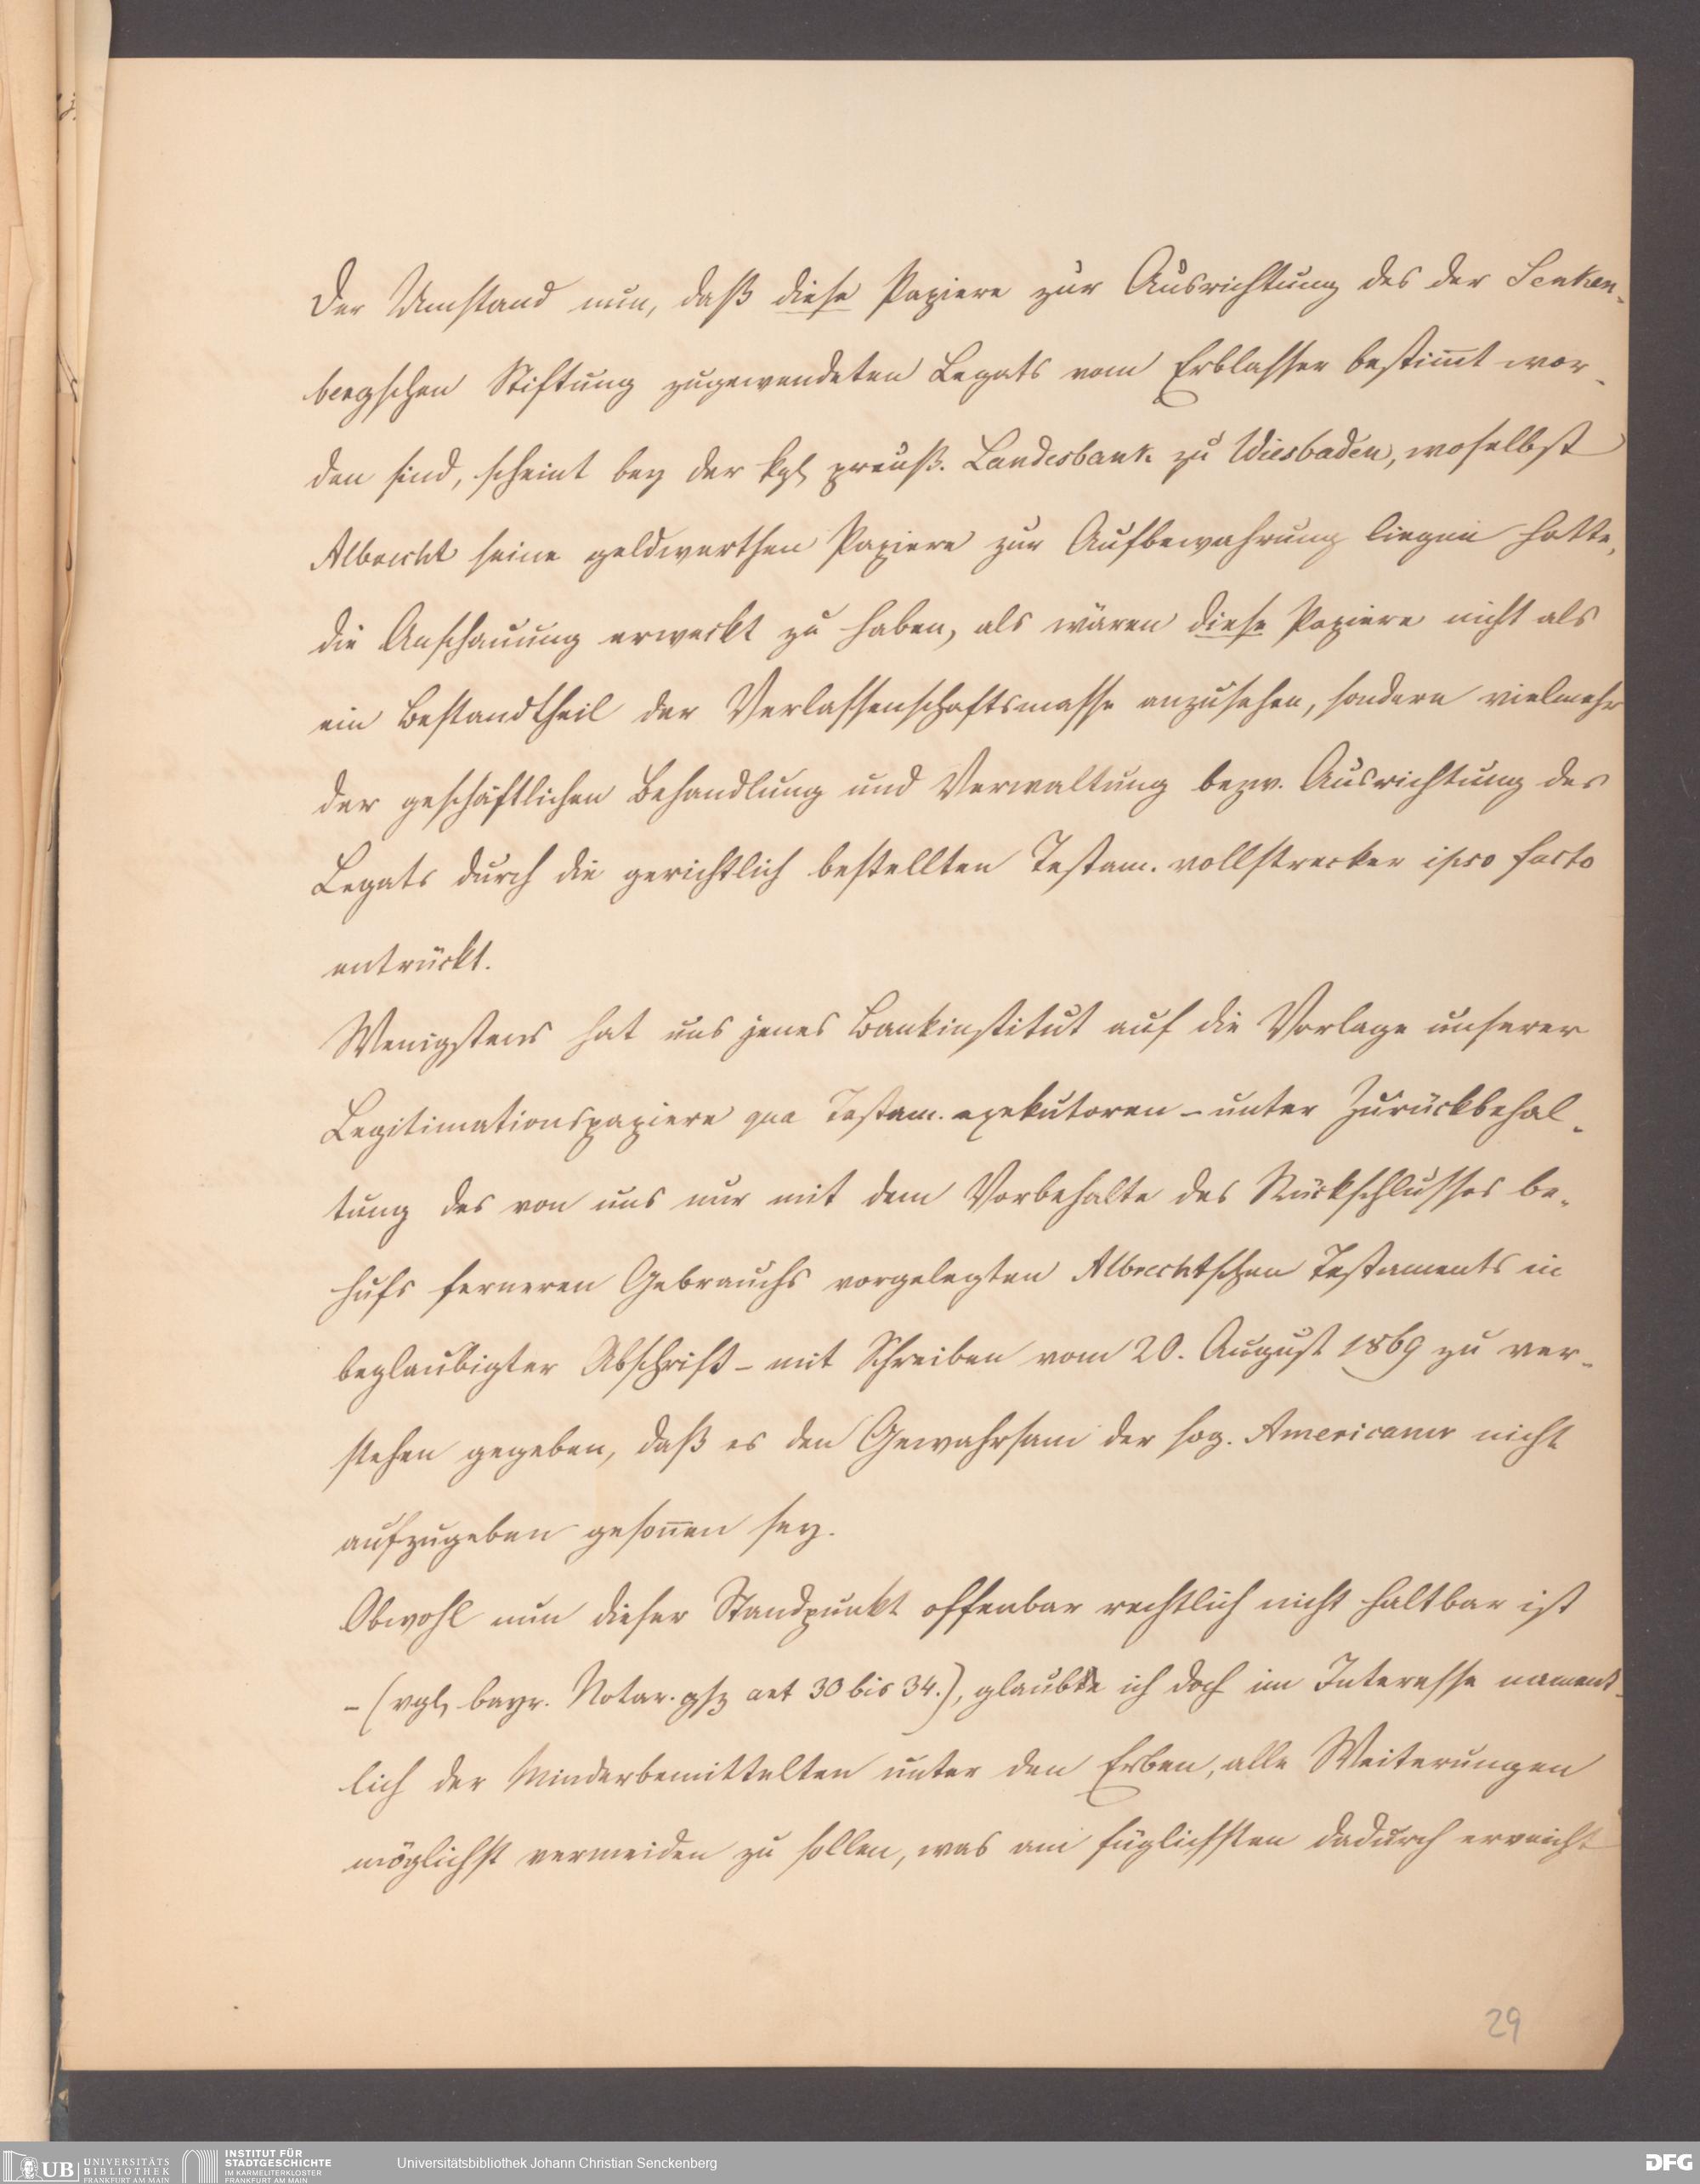 Der Umstand nun, daß diese Papiere zur Ausrichtung des der Senken-
bergschen Stiftung zugewendeten Legats vom Erblasser bestim̄t wor-
den sind, scheint bey der kgl preuß. Landesbank zu Wiesbaden, woselbst
Albrecht seine geldwerthen Papiere zur Aufbewahrung liegen hatte,
die Anschauung erweckt zu haben, als wären diese Papiere nicht als
ein Bestandtheil der Verlassenschaftsmasse anzusehen, sondern vielmehr
der geschäftlichen Behandlung und Verwaltung bezw. Ausrichtung des
Legats durch die gerichtlich bestellten Testam. vollstrecker ipso facto
entrückt.
Wenigstens hat uns jenes Bankinstitut auf die Vorlage unserer
Legitimationspapiere qua Testam. exekutoren – unter Zurückbehal-
tung des von uns nur mit dem Vorbehalte des Rückschlusses be-
hufs ferneren Gebrauchs vorgelegten Albrechtschen Testaments in
beglaubigter Abschrift – mit Schreiben vom 20. August 1869 zu ver-
stehen gegeben, daß es den Gewahrsam der sog. Americaner nicht
aufzugeben geson̄en sey.
Obwohl nun dieser Standpunkt offenbar rechtlich nicht haltbar ist
– (vgl. bayr. Notar. gsz art 30 bis 34.), glaubte ich doch im Interesse nament-
lich der Minderbemittelten unter den Erben, alle Weiterungen
möglichst vermeiden zu sollen, was am füglichsten dadurch erreicht
29
UB UNIVERSITÄTS
BIBLIOTHEK
FRANKFURT AM MAIN
INSTITUT FÜR
STADTGESCHICHTE
IM KARMELITERKLOSTER
FRANKFURT AM MAIN
Universitätsbibliothek Johann Christian Senckenberg
DFG